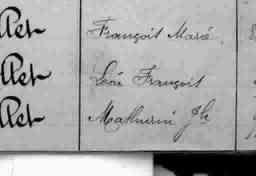 llet François Marie
llet Léon François
llet Mathurin Jh